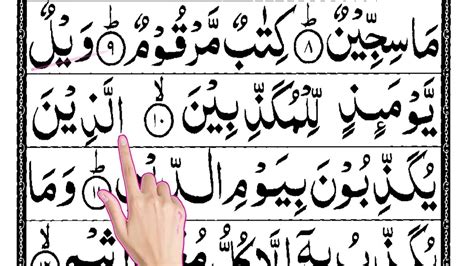 مَا سِجِّيْنٌ ؕ﴿۸﴾ كِتٰبٌ مَّرْقُوْمٌ ؕ﴿۹﴾ وَيْلٌ
يَّوْمَئِذٍ لِّلْمُكَذِّبِيْنَ ۙ﴿۱۰﴾ الَّذِيْنَ
يُكَذِّبُوْنَ بِيَوْمِ الدِّ ؕ﴿۱۱﴾ وَمَا
يُكَذِّبُ بِهٖۤ اِلَّا كُلُّ ﴿۱۲﴾